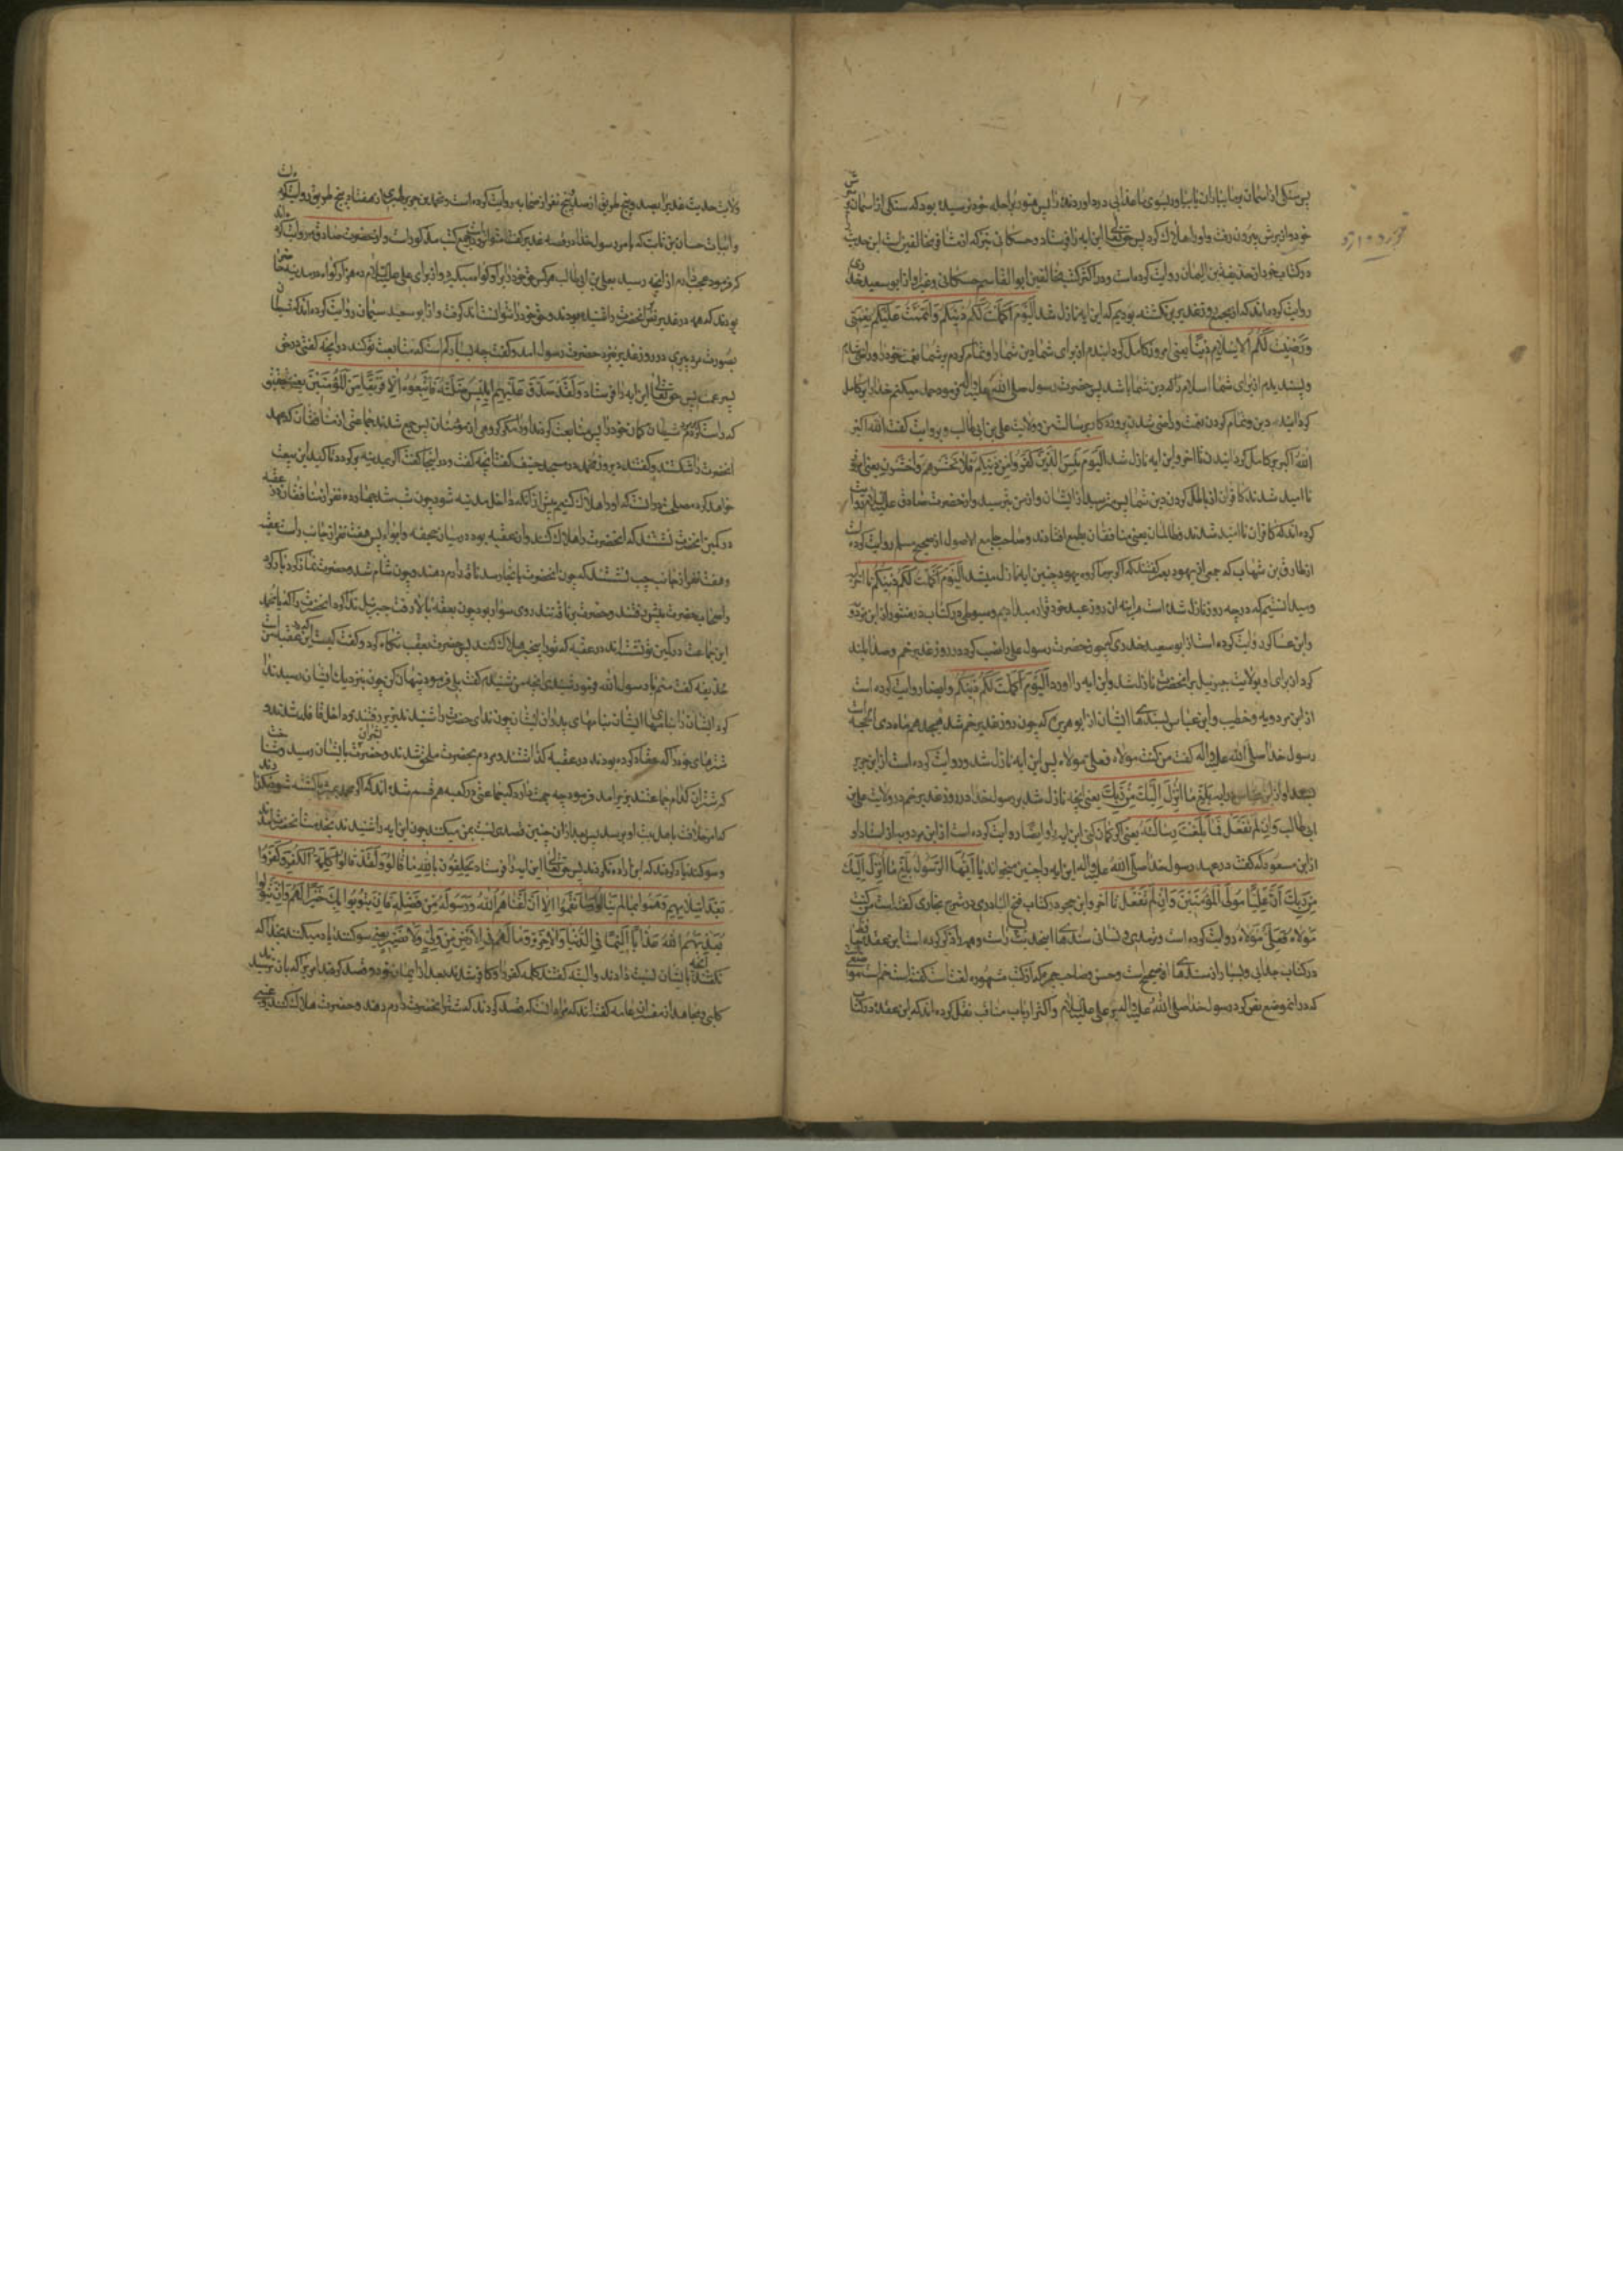 پس سنکی از اسمان بر ما بباران یا بیاور بسوی ما عذابی درد اورنده را پس هنوز براحله خود نرسیده بود که سنکی از اسمان بر
خود و از بیرون رفت و او را هلاک کرد پس حق تعالی این ایه را فرستاد و حسکانی نیز که از مخالفین است این حدیث
در کتاب خود از حذیفة بن الیمان روایت کرده است و در اکثر کتب مخالفین ابو القاسم حسکانی و غیر او از ابو سعید خدری
روایت کرده اند که از غدیر برنکشته بودیم که این ایه نازل شد الیوم اکملت لکم دینکم و اتممت علیکم نعمتی
و رضیت لکم الاسلام دینا یعنی امروز کامل کردانیدم از برای شما دین شما را و تمام کردم بر شما نعمت خود را و راضی شدم
و پسندیدم از برای شما اسلام را که دین شما باشد پس حضرت رسول صلی الله علیه واله فرمود حمد میکنم خدا را بر کامل
کردانیدن دین و تمام کردن نعمت و راضی شدن پروردکار برسالت من و ولایت علی بن ابی طالب و بروایت کفت الله اکبر
الله اکبر بر کامل کردانیدن تا اخر و این ایه نازل شد الیوم یئس الذین کفروا من دینکم فلا تخشوهم واخشون یعنی امروز
نا امید شدند کافران از باطل کردن دین شما پس مترسید از ایشان و از من بترسید و از حضرت صادق علیه السلام روایت
کرده اند که کافران نا امید شدند و ظالمان یعنی منافقان بطمع افتادند و صاحب جامع الاصول از صحیح مسلم روایت کرده است
از طارق بن شهاب که جمعی از یهود بعمر کفتند که اکر بر ما کروه یهود چنین ایه نازل میشد الیوم اکملت لکم دینکم تا اخر ایه
و میدانستیم که در چه روز نازل شده است هر اینه ان روز عید خود قرار میدادیم و سیوطی در کتاب در منثور از ابن مردویه
و ابن عساکر روایت کرده است از ابو سعید خدری که چون حضرت رسول علی را نصب کرد در روز غدیر خم و صدا بلند
کرد از برای او بولایت جبرئیل بر انحضرت نازل شد و این ایه را اورد الیوم اکملت لکم دینکم و ایضا روایت کرده است
از ابن مردویه و خطیب و ابن عساکر بسندهای ایشان از ابو هریره که چون روز غدیر خم شد هیجدهم ماه ذی الحجه
رسول خدا صلی الله علیه واله کفت من کنت مولاه فعلی مولاه پس این ایه نازل شد و روایت کرده است از ابن جریر
بلغ ما انزل الیک من ربک یعنی انچه نازل شد بر رسول خدا در روز غدیر خم در ولایت علی بن
ابی طالب و ان لم تفعل فما بلغت رسالته یعنی اکر کتمان کنی این ایه را و ایضا روایت کرده است از ابن مردویه باسناد او
از ابن مسعود که کفت در عهد رسول خدا صلی الله علیه واله این ایه را چنین میخواندیم یا ایها الرسول بلغ ما انزل الیک
من ربک ان علیا مولی المؤمنین و ان لم تفعل تا اخر و ابن حجر در کتاب فتح الباری در شرح بخاری کفته است من کنت
مولاه فعلی مولاه روایت کرده است و ترمذی و نسائی سندهای این حدیث
در کتاب جدائی و بسیار از سندهای او صحیح است و حسن
که در ان موضع نص کرد رسول خدا صلی الله علیه واله بر علی علیه السلام و اکثر ارباب مناقب نقل کرده اند که ابن عقده در کتاب
ولایت حدیث غدیر را بصد و پنج طریق از صد و پنج نفر از صحابه روایت کرده است و محمد بن جریر طبری از هفتاد و پنج طریق روایت کرده
و ابیات حسان بن ثابت که بامر رسول خدا در قصه غدیر کفت در جمیع کتب مذکور است و از حضرت صادق مرویست
که فرمود عجب دارم از انچه رسید بعلی بن ابی طالب هر کس حق خود را بدو کواه میکیرد و از برای علی علیه السلام ده هزار کواه در مدینه
بودند که همه در غدیر نص انحضرت را شنیده بودند و حق خود را نتوانست کرفت و از ابو سعید سمان روایت کرده اند که شیطان
بصورت مرد پیری در روز غدیر نزد حضرت رسول امد و کفت چه بسیار کم است که متابعت تو کنند در انچه کفتی در حق
پسر عمت پس حق تعالی این ایه را فرستاد و لقد صدق علیهم ابلیس ظنه فاتبعوه الا فریقا من المؤمنین یعنی بتحقیق
که راست کرد شیطان کمان خود را پس متابعت کردند او را مکر کروهی از مؤمنان پس جمع شدند جماعتی از منافقان که عهد
انحضرت را شکستند و کفتند دیروز محمد در مسجد خیف کفت انچه کفت و در اینجا کفت اکر بمدینه بر کردد تاکید این بیعت
خواهد کرد مصلحت در انست که او را هلاک کنیم پیش از انکه داخل مدینه شود چون شب شد چهارده نفر از منافقان در عقبه
در کمین انحضرت نشستند که انحضرت را هلاک کنند و ان عقبه بود در میان جحفه و ابواء پس هفت نفر از جانب راست عقبه
و هفت نفر از جانب چپ نشستند که چون انحضرت بانجا رسد ناقه را رم دهند و چون شام شد حضرت نماز کرد و بار کرد
و اصحاب حضرت پیش رفتند و حضرت بر ناقه تند روی سوار بود چون بعقبه بالا رفت جبرئیل ندا کرد انحضرت را که یا محمد
این جماعت در کمین تو نشسته اند در عقبه که تو را بیخبر هلاک کنند پس حضرت بعقب نکاه کرد و کفت کیست این عقب من
حذیفه کفت منم یا رسول الله فرمود شنیدی انچه من شنیدم کفت بلی فرمود پنهان کن چون بنزدیک ایشان رسید ندا
کرد ایشان را بنامهای ایشان و نامهای پدران ایشان چون ندای حضرت را شنیدند بزیر رفتند و داخل قافله شدند و
شترهای خود را که عقال کرده بودند در عقبه کذاشتند و مردم بحضرت ملحق شدند و حضرت بشتران ایشان رسید و شناخت
که شتران کدام جماعتند چون بزیر امد فرمود چه جهت دارد که جماعتی در کعبه هم قسم شده اند که اکر محمد بمیرد یا کشته شود
که امر خلافت باهل بیت او برسد پس بعد از ان چنین قصدی نسبت بمن میکنند چون این ایه را شنیدند بخدمت انحضرت امدند
و سوکند یاد کردند که این را اراده نکردند پس حق تعالی این ایه را فرستاد یحلفون بالله ما قالوا و لقد قالوا کلمة الکفر و کفروا
بعد اسلامهم و هموا بما لم ینالوا و ما نقموا الا ان اغناهم الله و رسوله من فضله فان یتوبوا یک خیرا لهم و ان یتولوا
یعذبهم الله عذابا الیما فی الدنیا و الاخرة و ما لهم فی الارض من ولی و لا نصیر یعنی سوکند یاد میکنند بخدا که
نکفتند انچه بایشان نسبت دادند و البته کفتند کلمه کفر را و کافر شدند بعد از ایمان خود و قصد کردند امریرا که بان نرسیدند
کلبی و مجاهد از مفسران عامه کفته اند که مراد انست که قصد کردند که شتر انحضرت را رم دهند و حضرت هلاک کنند